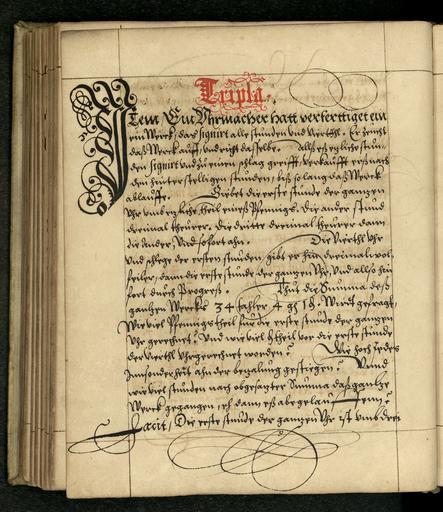 Tripla.
Item Ein Uhrmacher hatt verfertiget ein
ein Werck, das signirt alle stunden vnd Viertheil. Er zeucht
daß Werck auff, vnd richt dasselbe. Alß eß etzliche stun-
den signirt vnd zu einen schlag greifft, verkaufft erß nach
den hinterstelligen stunden, biß so lang daß Werck
ablauffe. Giebet die erste stunde der gantzen
Uhr vnd etzliche theil eineß Pfennigs. Die ander stund
dreimal theurer. Die dritte dreimal theurer dann
die ander, Vnd so fort ahn. Die Viertheil Uhr
vnd schlege der ersten stunden, gibt er hin dreimal wol-
feiler, dann die erste stunde der gantzen Uhr, Vnd also hin
fort durch Progreß. Thut die Summa deß
gantzen Wercks 34 tahler 4 gl 1 d. Wirdt gefragt,
Wie viel Pfennigs theil für die erste stunde der gantzen
Uhr gerechnet? Vnd wie viel theil vor die erste stunde
der Viertheil Uhr gerechnet worden? Wie hoch jedes
in sonderheit ahn der bezalung gestiegen? Vnnd
wie viel stunden nach obgesatzter Summa daß gantze
Werck gegangen, eh dann eß abgelauffenn?
Facit, Die erste stunde der gantzen Uhr ist vmb drei